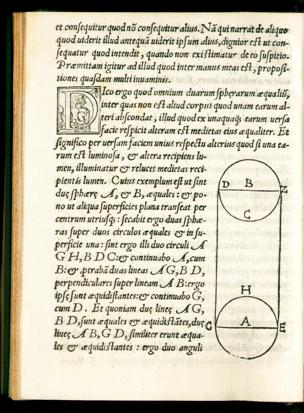 et consequitur quod nō consequitur alius. Nā qui narrat de aliquo
quod uiderit illud antequā uiderit ipsum alius, dignior est ut con-
sequatur quod intendit, quando non existimatur de eo suspicio.
Præmittam igitur ad illud quod inter manus meas est, proposi-
tiones quasdam multi iuuaminis.
DIco ergo quod omnium duarum sphęrarum æqualiū,
inter quas non est aliud corpus quod unam earum al-
teri abscondat, illud quod ex unaquaq; earum uersa
facie respicit alteram est medietas eius æqualiter. Et
significo per uersam faciem unius respectu alterius quod si una ea-
rum est luminosa, & altera recipiens lu-
men, illuminatur & relucet medietas reci-
pientis lumen. Cuius exemplum est ut sint
duę sphęrę A, & B, æquales: & po-
no ut aliqua superficies plana transeat per
centrum utriusq;: secabit ergo duas sphæ-
ras super duos circulos æquales & in su-
perficie una: sint ergo illi duo circuli A
G H, B D C: & continuabo A, cum
B: & ꝓtrahā duas lineas A G, B D,
perpendiculares super lineam A B: ergo
ipsę sunt æquidistantes: & continuabo G,
cum D. Et quoniam duę lineę A G,
B D, sunt æquales & æquidistātes, duę
lineę A B, G D, similiter erunt æqua-
les & æquidistantes: ergo duo anguli
D B Z
C
H
G A E